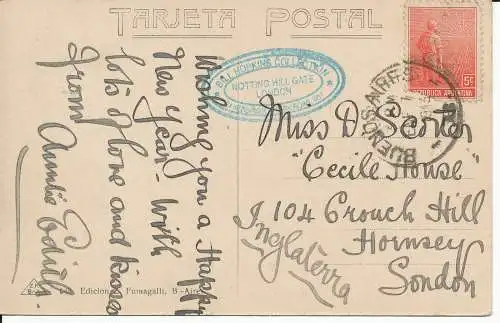 TARJETA POSTAL
Wishing you a Happy
New Year - with
lots of love and kisses
from Auntie Edith
BILL HOPKINS COLLECTION
NOTTING HILL GATE
LONDON
5c
REPUBLICA ARGENTINA
BUENOS AIRES
Miss D. Scotter
"Cecile House"
104 Crouch Hill
Hornsey
London
Inglaterra
Edicion Fumagalli, B-Aires